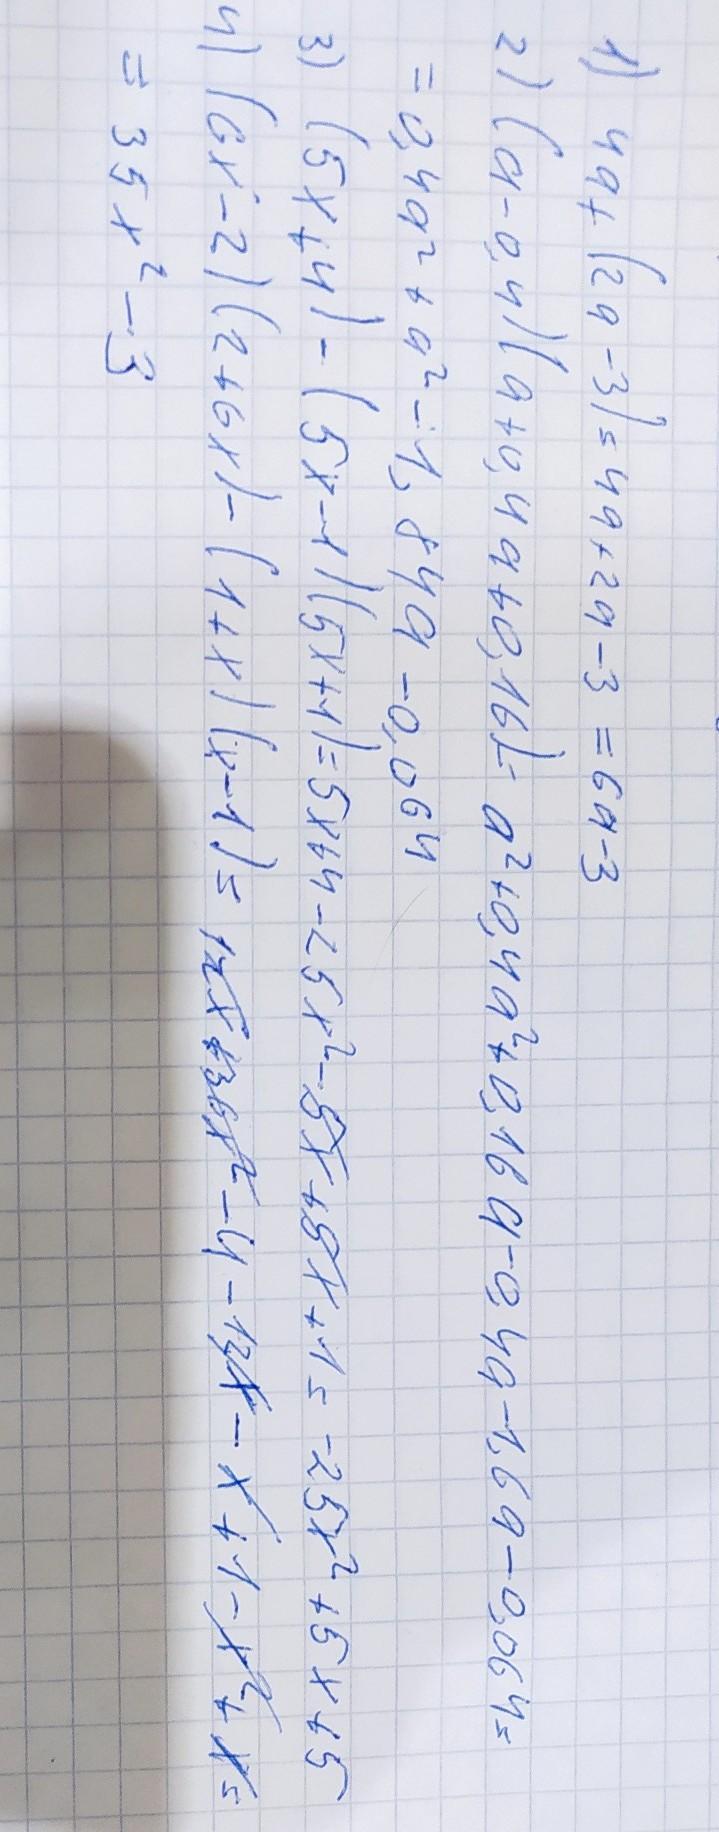 1) 4a+(2a-3)=4a+2a-3=6a-3
2) (a-0,4)(a+0,4a+0,16)= a²+0,4a²+0,16a-0,4a-1,6a-0,064=
=0,4a²+a²-1,84a-0,064
3) (5x+4)-(5x-1)(5x+1)=5x+4-25x²-5x+5x+1=-25x²+5x+5
4) (6x-2)(2+6x)-(1+x)(x-1)=12x+36x²-4-12x-x+1-x²+x=
=35x²-3